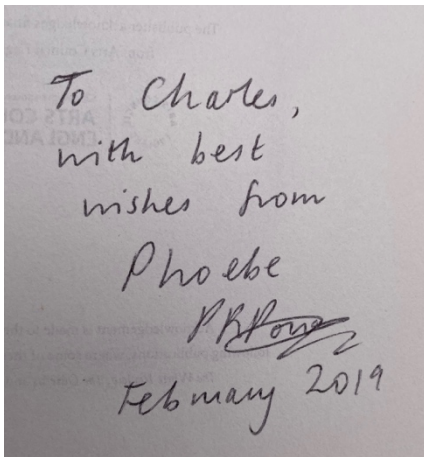 To Charles,
with best
wishes from
Phoebe
February 2019